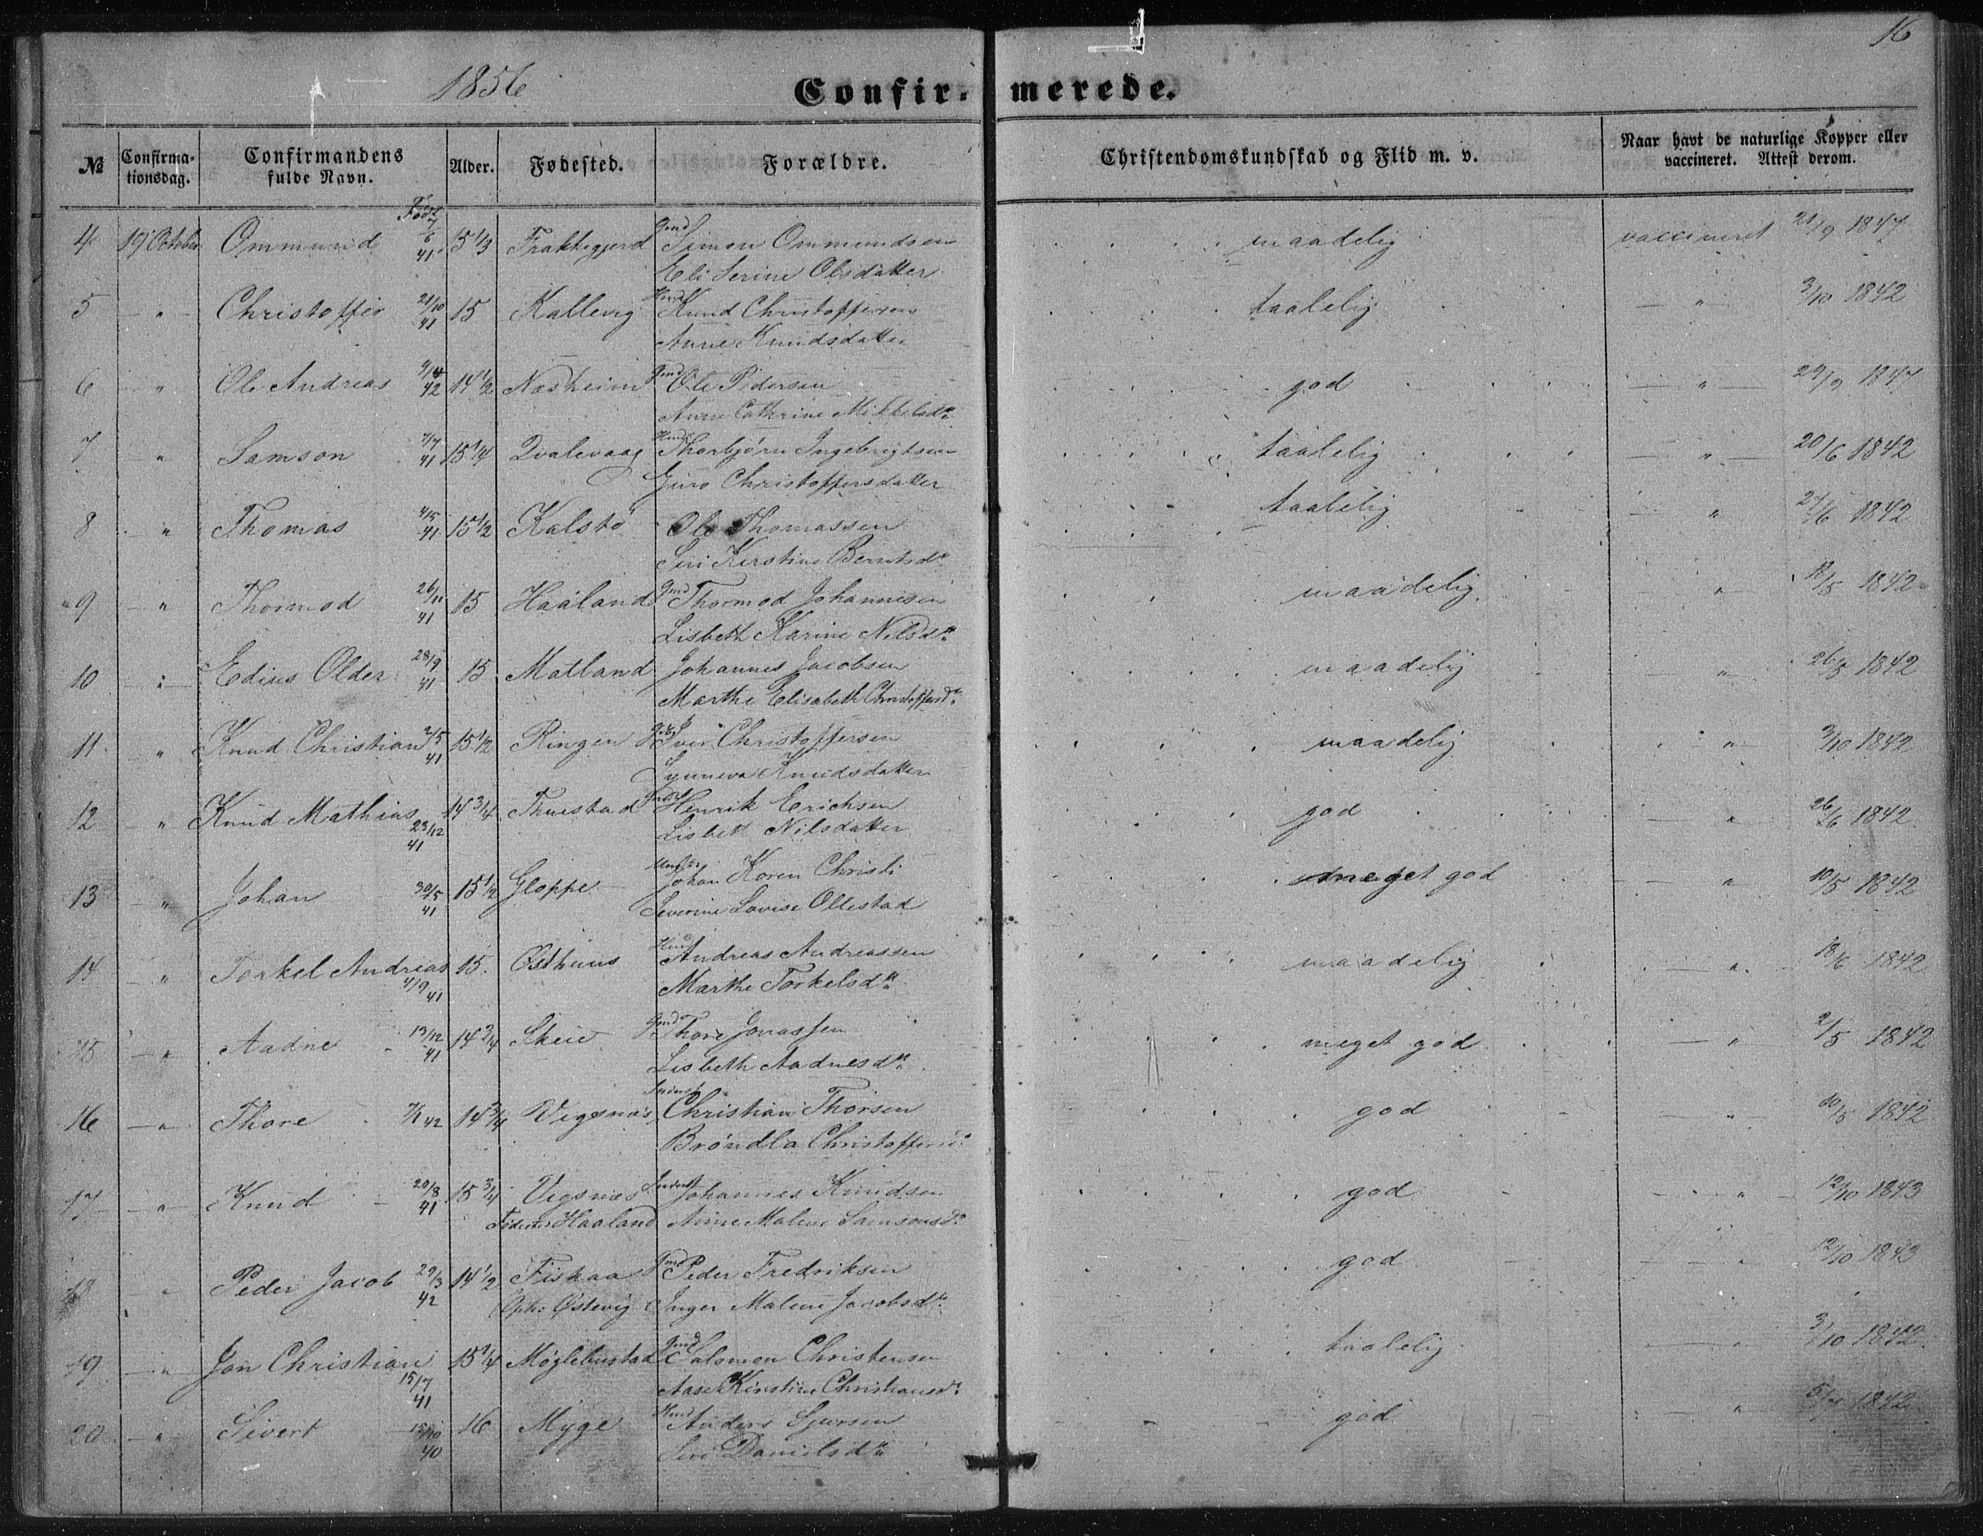 16
1856 Confirmerede.
№ Confirmationsdag. Confirmandens fulde Navn. Alder. Fødested. Forældre. Christendomskundskab og Flid m. v. Naar havt de naturlige Kopper eller vaccineret. Attest derom.
Født
4 19 October Ommund 7/6 41 15 1/3 Frakkegjerd Gmd Simon Ommundsen maadelig vaccineret 21/9 1847
Eli Serine Olsdatter
5 — " — Christoffer 21/10 41 15 Kallevig Hmd Knud Christoffersen taalelig — " — 3/10 1842
Anne Knudsdatter
6 — " Ole Andreas 42 14 1/2 Nosheim Gmd Ole Pedersen god — " — 29/9 1847
Anne Cathrine Mikkelsdr
7 " Samson 7/7 41 15 1/4 Qvalevaag Hmd Thorbjørn Ingebrigtsen taalelig — " — 20/6 1842
Guro Christoffersdatter
8 " Thomas 4/5 41 15 1/2 Kalstø Ole Thomassen taalelig " 24/6 1842
Siri Kirstine Berntsdr
9 — " Thormod 26/11 41 15 Haaland Gmd Thormod Johannesen maadelig " 18/5 1842
Lisbeth Karine Nilsdr
10 — " — Edius Older 28/9 41 15 Matland Johannes Jacobsen maadelig " 26/5 1842
Marthe Elisabeth Christoffersdr
11 " Knud Christian 2/5 41 15 1/2 Ringen Iver Christoffersen maadelig " 3/10 1842
Synneva Knudsdatter
12 — " Knud Mathias 14 3/4 Thuestad Henrik Erichsen god — " 26/6 1842
23/12 41 Lisbeth Nilsdatter
13 " Johan 30/5 41 15 1/2 Gloppe Johan Koren Christi meget god — " 10/5 1842
Severine Lovise Ollestad
14 " Torkel Andreas 15 Østhuus Hmd Andreas Andreassen maadelig — " 18/6 1842
4/9 41 Marthe Torkelsdr
15 — " Aadne 13/12 41 14 3/4 Skeie Gmd Thore Jonassen meget god — " 2/5 1842
Lisbeth Aadnesdr
16 — " Thore 42 14 3/4 Vigsnæs Christian Thorsen god — " 10/5 1842
Brøndla Christoffersdr
17 — " — Knud 20/8 41 15 3/4 Vigsnæs Johannes Knudsen god — " 12/10 1843
Haaland Anne Malene Samsonsdr
18 " Peder Jacob 29/3 42 14 1/2 Fiskaa Gmd Peder Fredriksen god " 12/10 1843
Oph: Østevig Inger Malene Jacobsdr
19 — " Jan Christian 15 1/4 Møglebustad Gmd Salomon Christensen taalelig — " — 3/10 1842
15/7 41 Aase Kirstine Christiansdr
20 — " Sivert 40 16 Myge Hmd Anders Sjursen god — " 1842
Siri Danielsdr